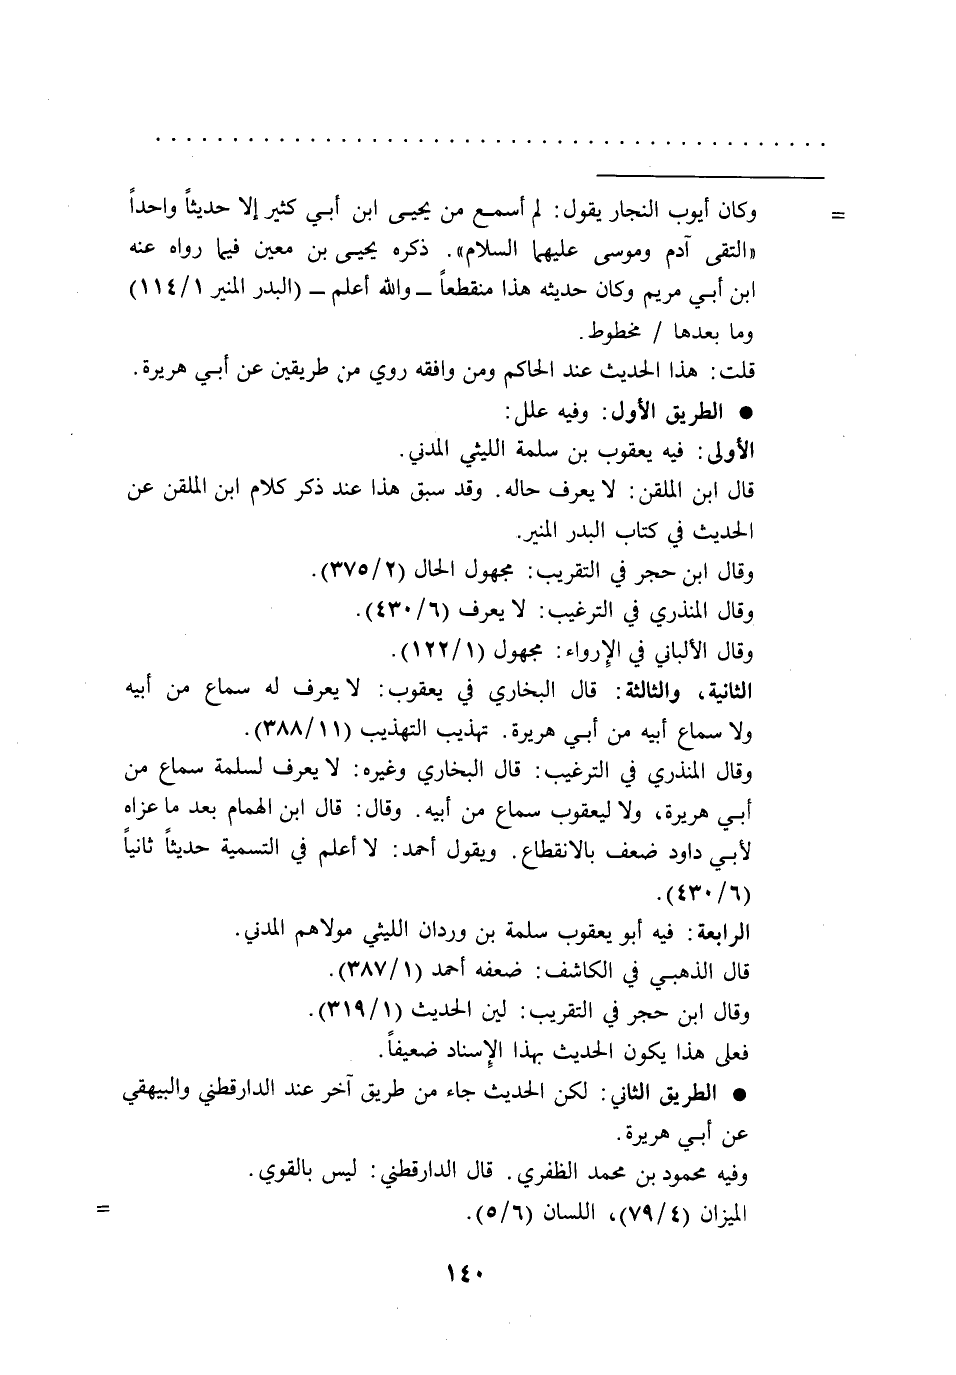 . . . . . . . . . . . . . . . . . . . . . . . . . . . . . . . . . . . . . . . . . . . .
= وكان أيوب النجار يقول: لم أسمع من يحيى ابن أبي كثير إلا حديثاً واحداً
«التقى آدم وموسى عليهما السلام». ذكره يحيى بن معين فيما رواه عنه
ابن أبي مريم وكان حديثه هذا منقطعاً ــ والله أعلم ــ (البدر المنير ١/١١٤)
وما بعدها / مخطوط.
قلت: هذا الحديث عند الحاكم ومن وافقه روي من طريقين عن أبي هريرة.
● الطريق الأول: وفيه علل:
الأولى: فيه يعقوب بن سلمة الليثي المدني.
قال ابن الملقن: لا يعرف حاله. وقد سبق هذا عند ذكر كلام ابن الملقن عن
الحديث في كتاب البدر المنير.
وقال ابن حجر في التقريب: مجهول الحال (٢/٣٧٥).
وقال المنذري في الترغيب: لا يعرف (٦/٤٣٠).
وقال الألباني في الإرواء: مجهول (١/١٢٢).
الثانية، والثالثة: قال البخاري في يعقوب: لا يعرف له سماع من أبيه
ولا سماع أبيه من أبي هريرة. تهذيب التهذيب (١١/٣٨٨).
وقال المنذري في الترغيب: قال البخاري وغيره: لا يعرف لسلمة سماع من
أبي هريرة، ولا ليعقوب سماع من أبيه. وقال: قال ابن الهمام بعد ما عزاه
لأبي داود ضعف بالانقطاع. ويقول أحمد: لا أعلم في التسمية حديثاً ثانياً
(٦/٤٣٠).
الرابعة: فيه أبو يعقوب سلمة بن وردان الليثي مولاهم المدني.
قال الذهبي في الكاشف: ضعفه أحمد (١/٣٨٧).
وقال ابن حجر في التقريب: لين الحديث (١/٣١٩).
فعلى هذا يكون الحديث بهذا الإسناد ضعيفاً.
● الطريق الثاني: لكن الحديث جاء من طريق آخر عند الدارقطني والبيهقي
عن أبي هريرة.
وفيه محمود بن محمد الظفري. قال الدارقطني: ليس بالقوي.
الميزان (٤/٧٩)، اللسان (٦/٥). =
١٤٠